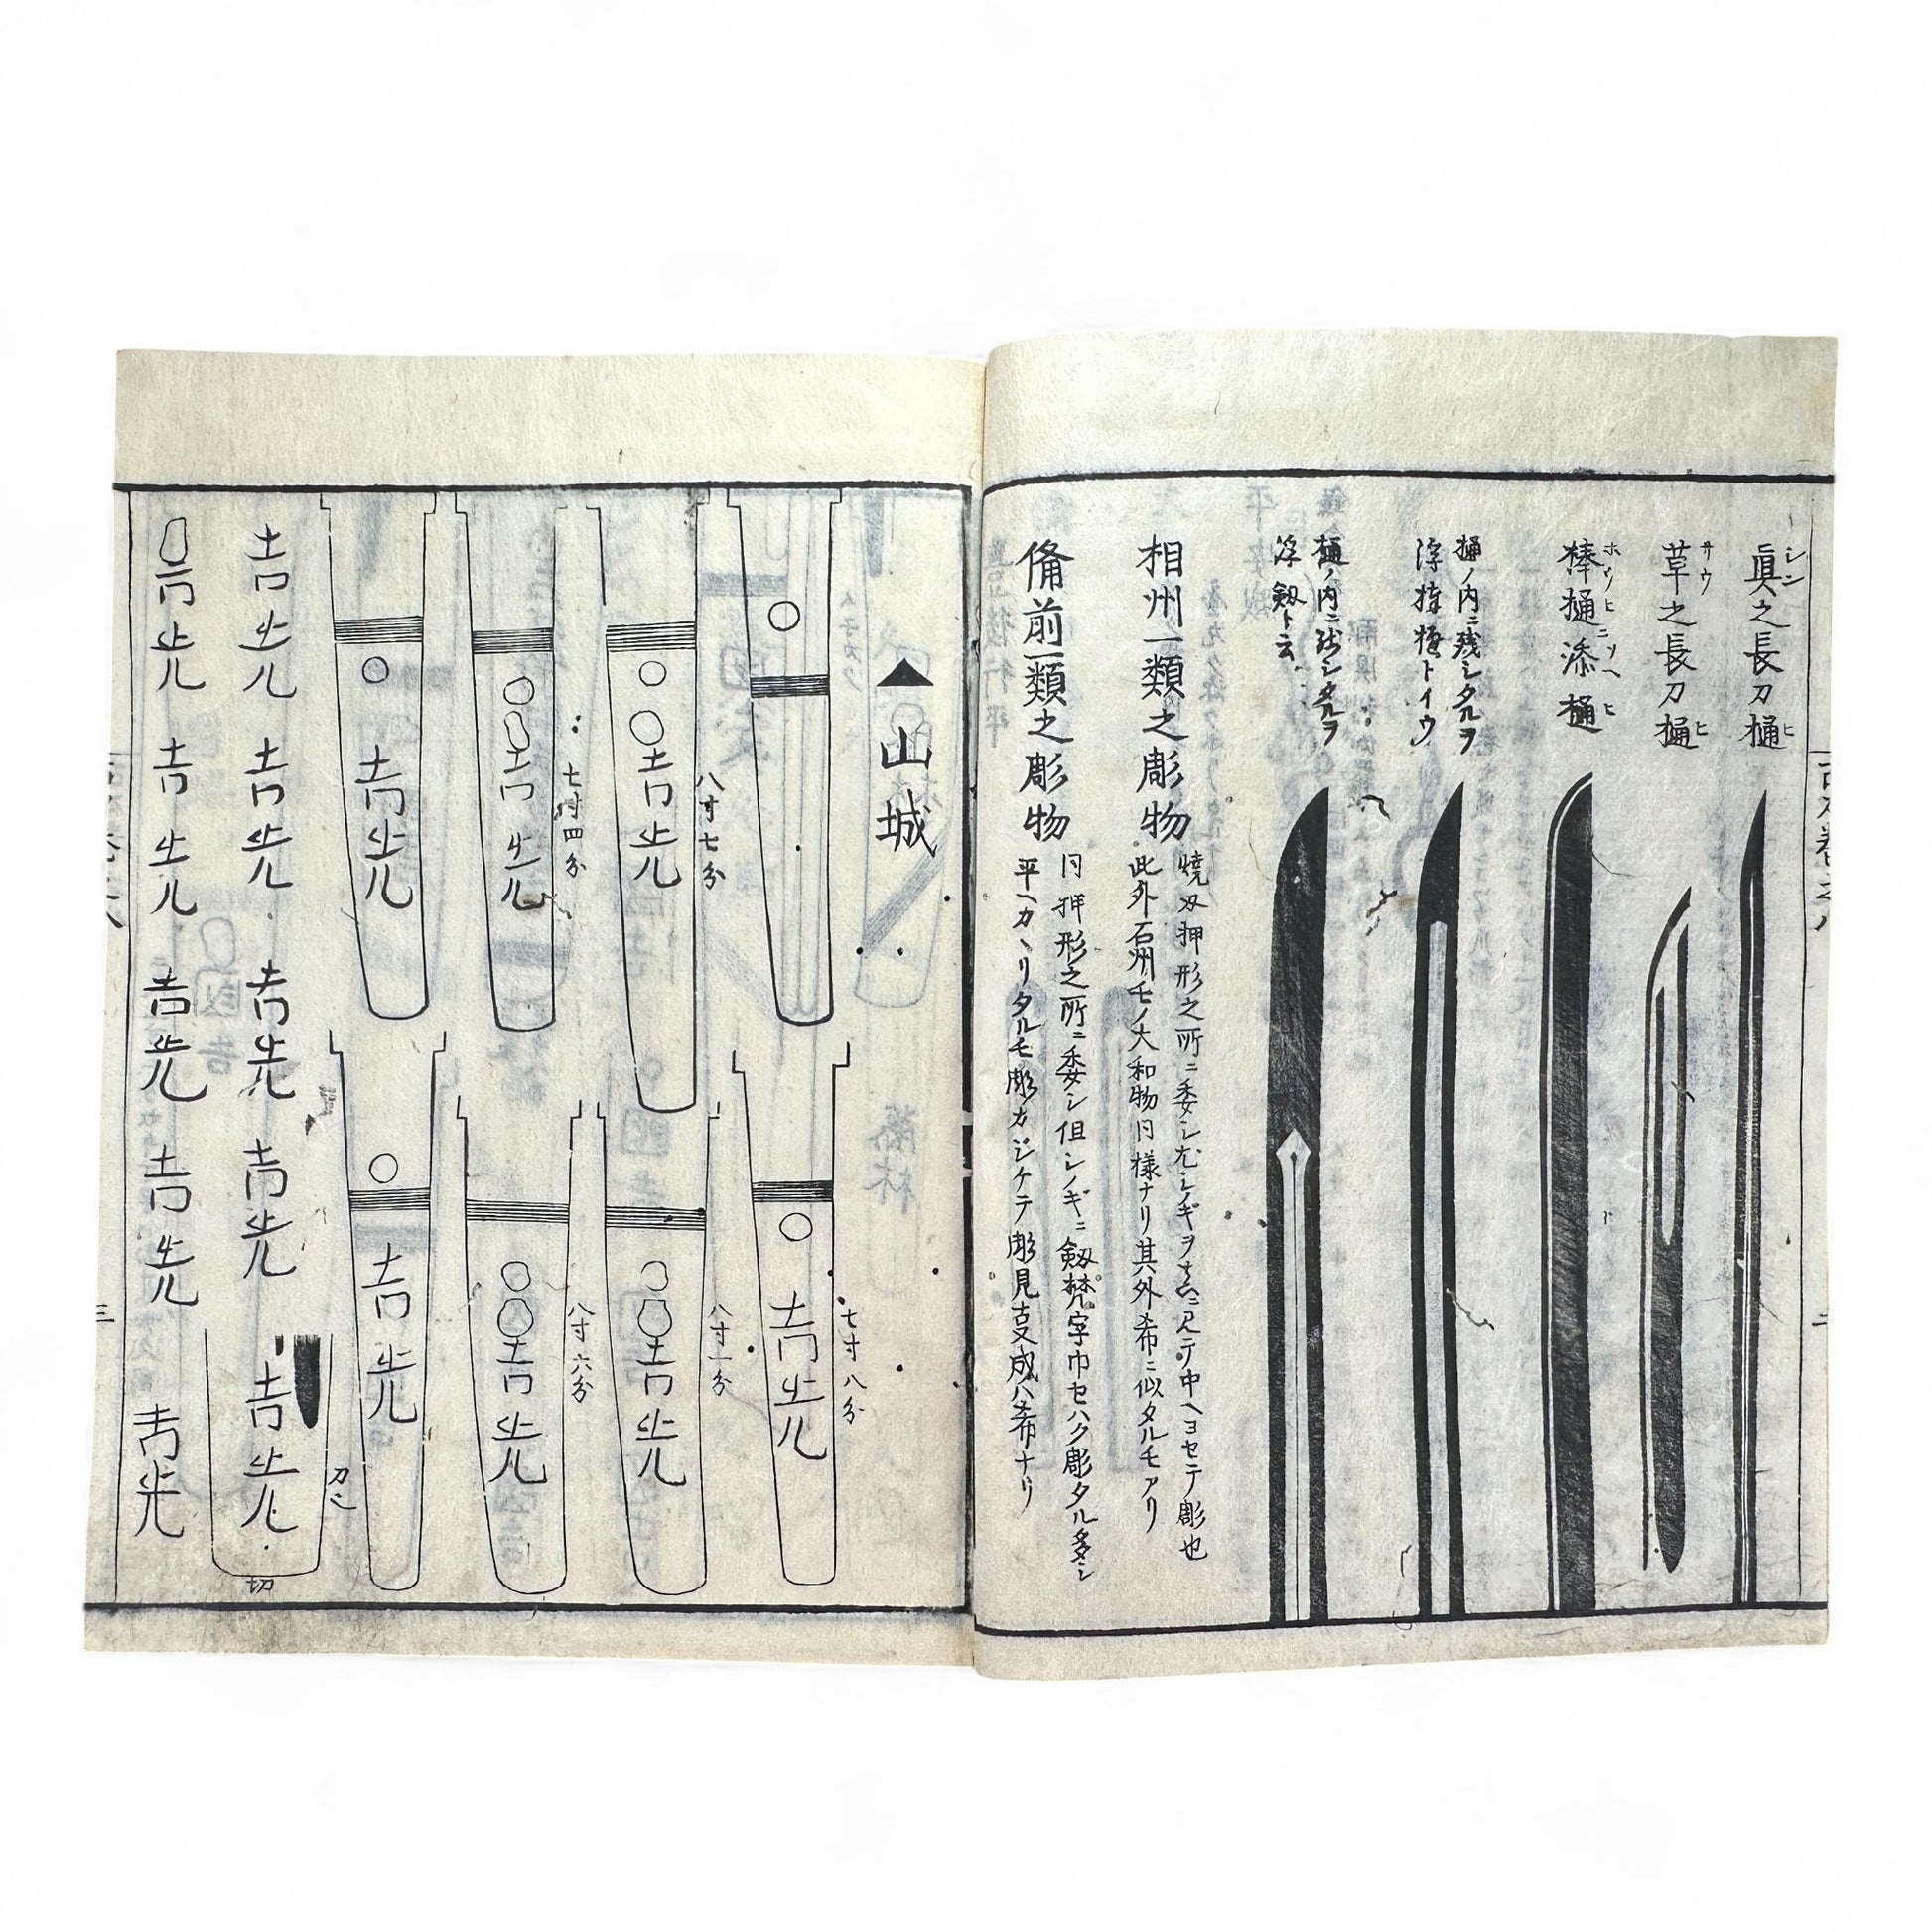 眞之長刀樋
シン
ヒ
草之長刀樋
サウ
ヒ
棒樋添樋
ホウヒニソヘヒ
樋ノ内ニ残シタルヲ
浮樋トイウ
樋ノ内ニ残シタルヲ
浮剱ト云
相州一類之彫物
焼刄押形之所ニ委シ尤シノギヲ
中ヘヨセテ彫也
此外石州モノ大和物同様ナリ其外希ニ似タルモアリ
備前一類之彫物
同押形之所ニ委シ但シノギニ剱梵字巾セハク彫タル多シ
平ヘカヽリタルモ彫カジケテ彫見古又成ハ希ナリ
▲山城
八寸七分
吉光
七寸四分
吉光
吉光
七寸八分
吉光
八寸一分
吉光
八寸六分
吉光
吉光
吉光
吉光
吉光
吉光
吉光
刀ニ
切
吉光
吉光
吉光
吉光
吉光
三